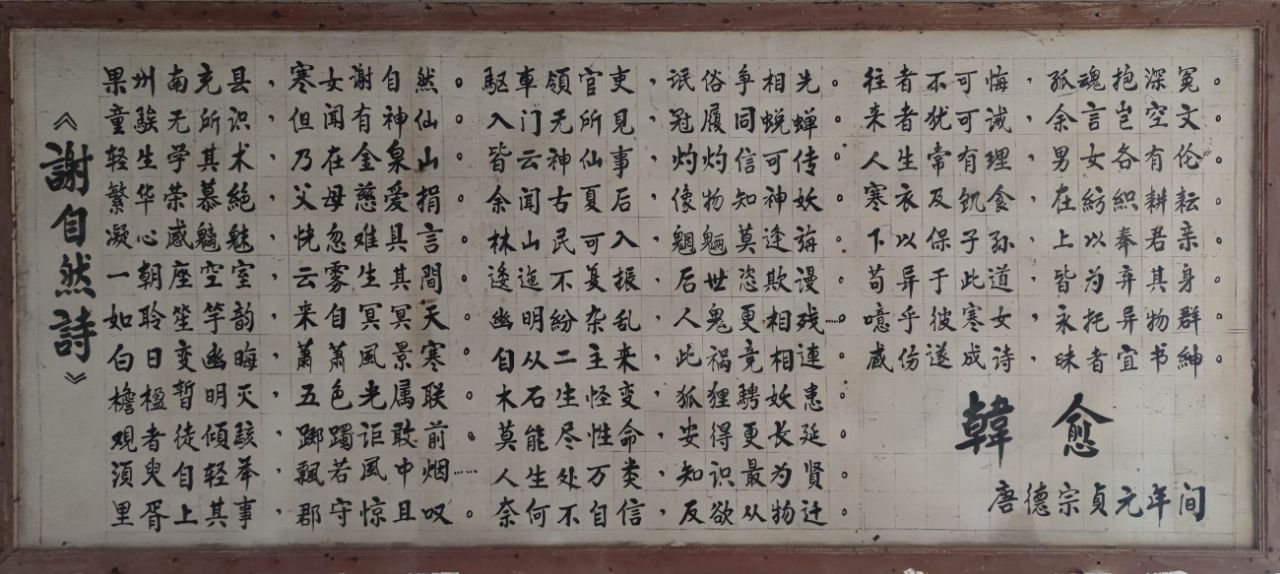 《謝自然詩》
果州南充县，寒女谢自然。
童騃无所识，但闻有神仙。
轻生学其术，乃在金泉山。
繁华荣慕絕，父母慈爱捐。
凝心感魑魅，恍忽难具言。
一朝座空室，云雾生其間。
如聆笙竽韵，来自冥冥天。
白日变幽晦，萧萧風景寒。
檐楹暂明灭，五色光属联。
观者徒倾骇，踯躅讵敢前。
须臾自轻举，飄若風中烟……
里胥上其事，郡守惊且叹。
驱車领官吏，氓俗争相先。
入门无所見，冠履同蜕蝉。
皆云神仙事，灼灼信可传。
余闻古夏后，像物知神妖。
林山民可入，魍魉莫逢诲。
逶迤不复振，后世恣欺谩。
幽明紛杂乱，人鬼更相残……
自从二主来，此祸竞相連。
木石生怪变，狐狸騁妖患。
莫能尽性命，安得更长延。
人生处万类，知识最为贤。
奈何不自信，反欲从物迁。
往者不可悔，孤魂抱深冤。
来者犹可诫，余言岂空文。
人生常有理，男女各有伦。
寒衣及饥食，在紡織耕耘。
下以保子孙，上以奉若亲。
苟异于此道，皆为弃其身。
噫乎彼寒女，永托异物群。
感伤遂成诗，昧者宜书紳。
韓愈
唐德宗贞元年间